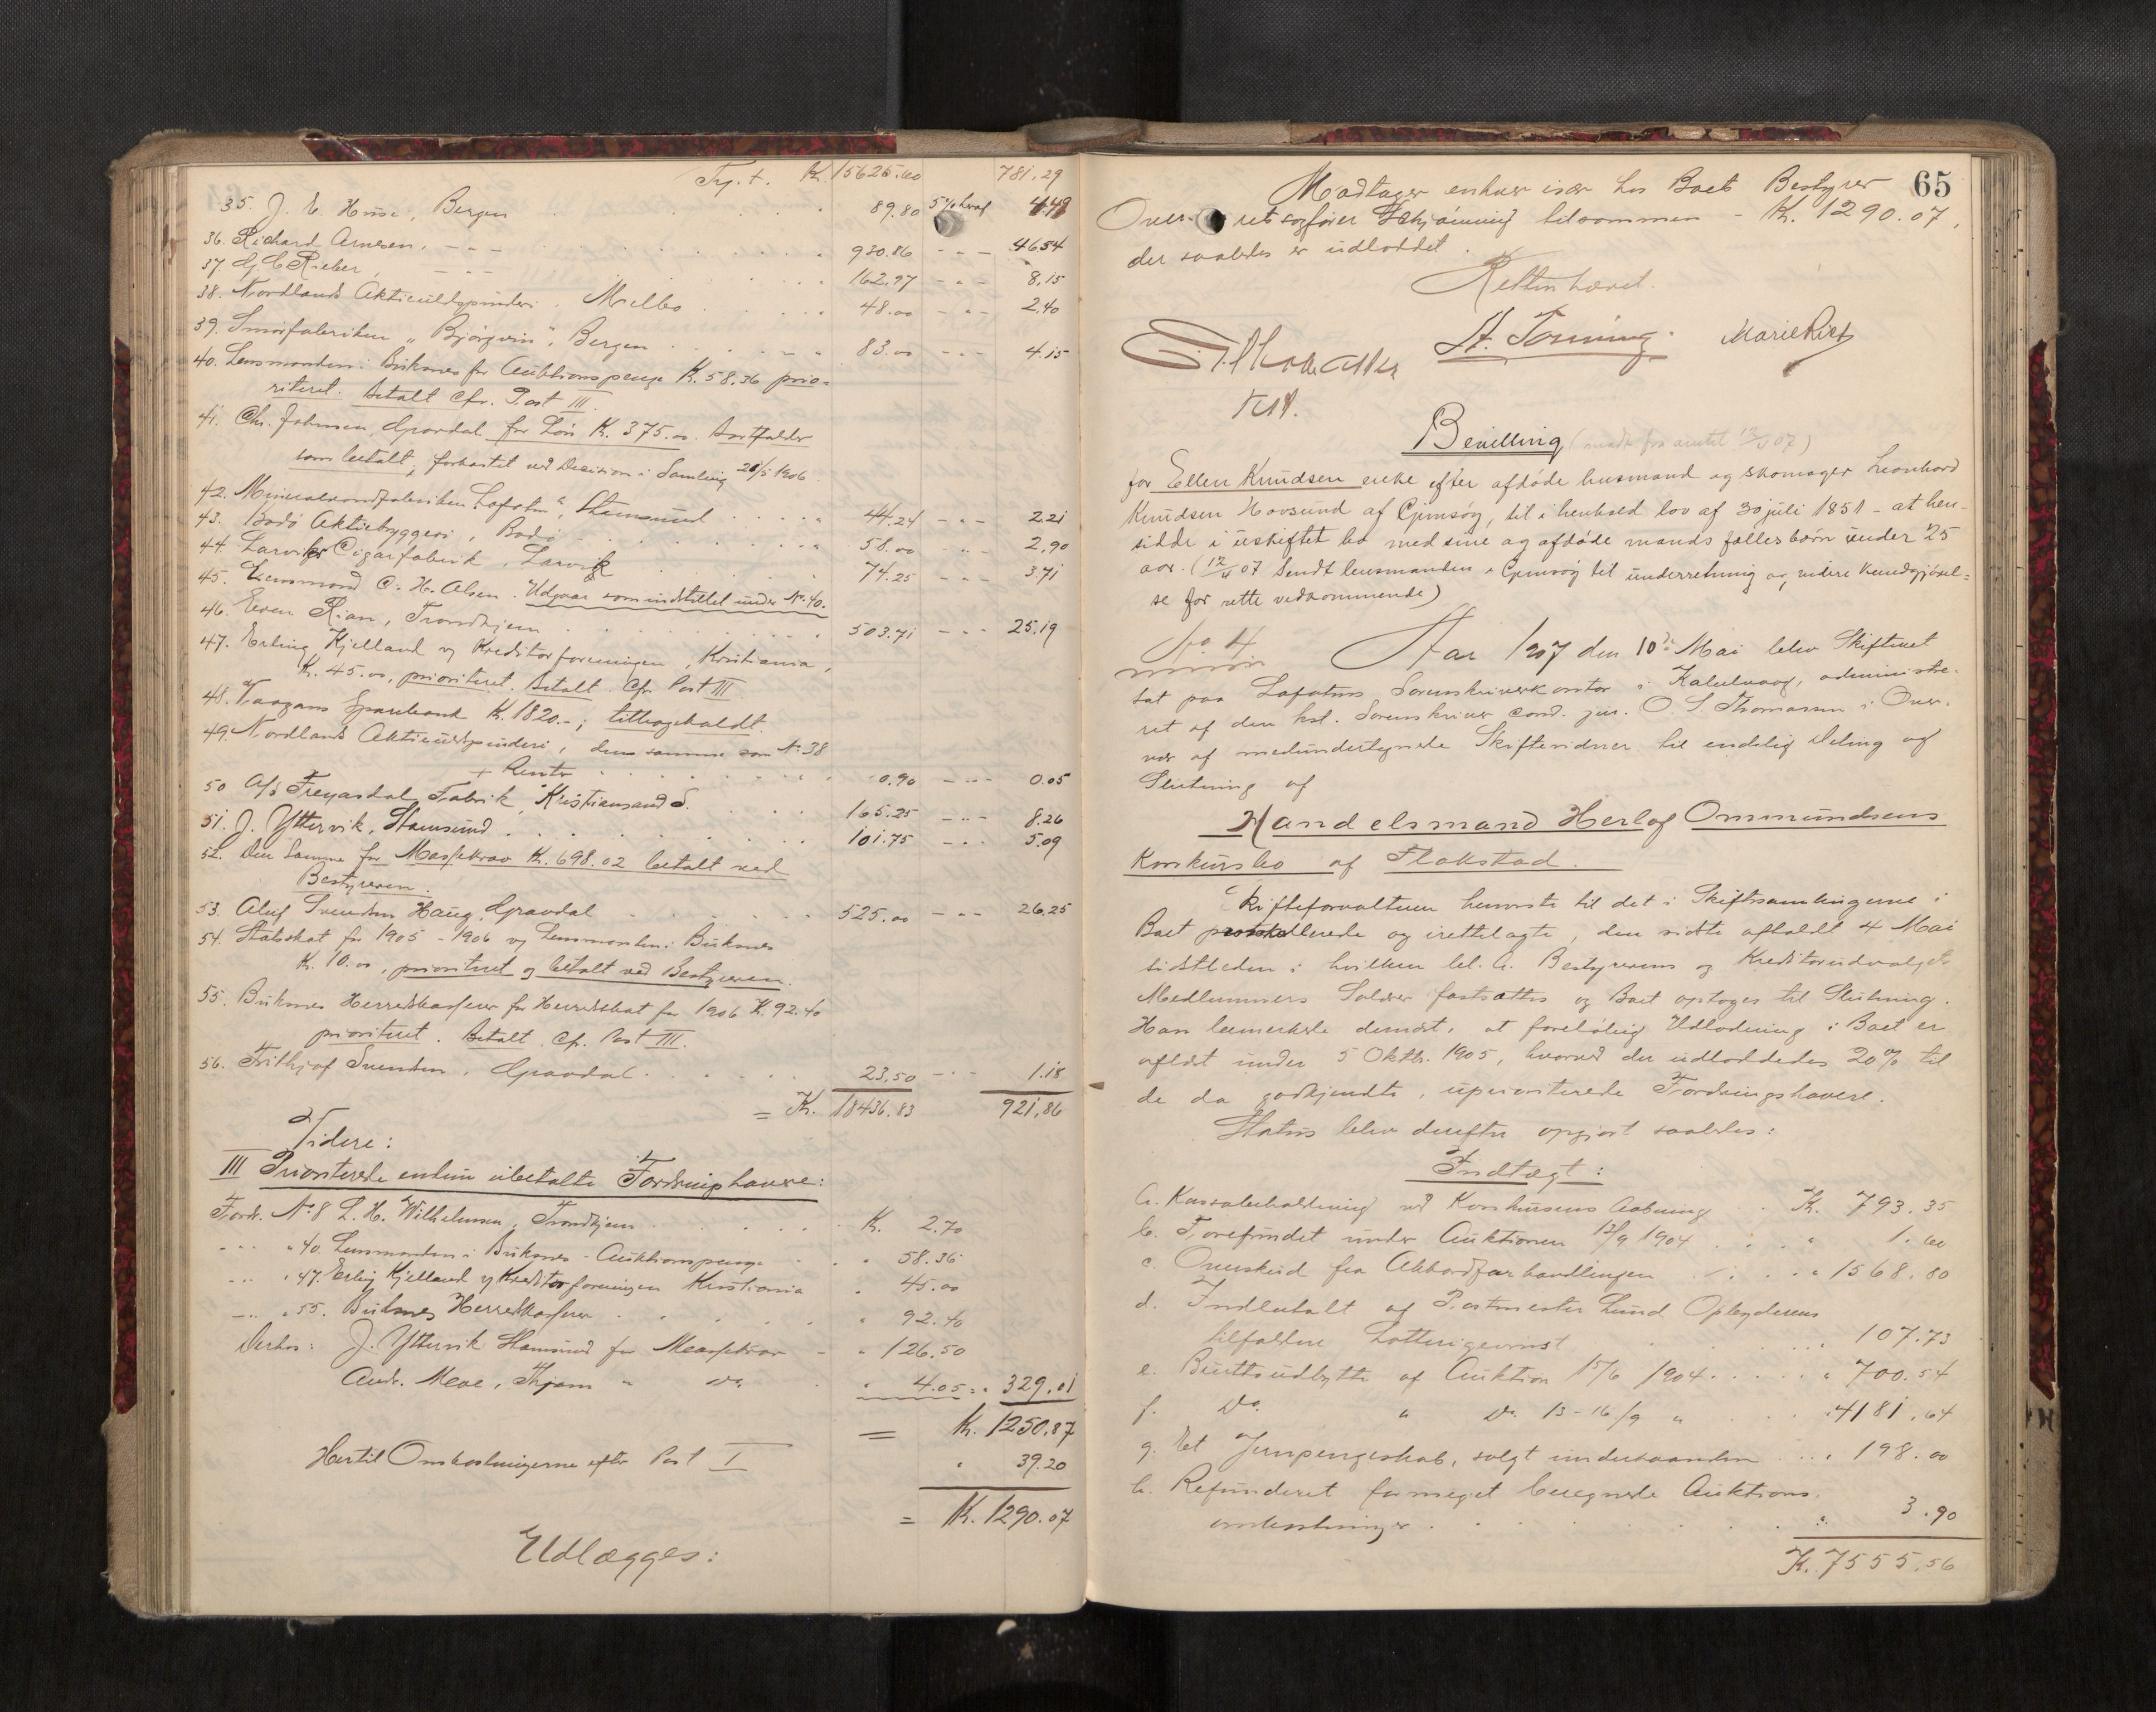 Trp. t. K. 15625.60 781.29
35. J. E. Huse, Bergen 89.80 5% krav 4.49
36. Richard Arnesen, - - - 930.86 - " - 46.54
37. G. C. Rieber, - - - 162.97 - " - 8.15
38. Nordlands Aktieuldspinderi, Melbo 48.00 - " - 2.40
39. Smørfabriken "Bjørgvin", Bergen 83.00 - " - 4.15
40. Lensmanden i Buksnes for Auktionspenge K. 58.36 prio-
riteret. Betalt cfr. Post III.
41. Chr. Johnsen, Gravdal for Løn K. 375.00. Bortfalder
som betalt, forkastet ved Decision i Samling 26/5 1906.
42. Mineralvandfabriken "Lofoten", Stamsund 44.24 - " - 2.21
43. Bodø Aktiebryggeri, Bodø 58.00 - " - 2.90
44. Larviks Cigarfabrik, Larvik 74.25 - " - 3.71
45. Lensmand C. H. Olsen. Udgaar som indstillet under No. 40.
46. Even Rian, Trondhjem 503.71 - " - 25.19
47. Erling Kjelland v/ Kreditorforeningen, Kristiania,
K. 45.00, prioriteret. Betalt. Cfr. Post III.
48. Vaagans Sparebank K. 1820.-; tilbageholdt.
49. Nordlands Aktieuldspinderi, den samme som No. 38
+ Renter 0.90 - " - 0.05
50. A/S Freyasdal Fabrik, Kristiansand S. 165.25 - " - 8.26
51. J. Yttervik, Stamsund 101.75 - " - 5.09
52. Den Samme for Massekrav K. 698.02 betalt ved
Bestyreren.
53. Aluf Svendsen Haug, Gravdal 525.00 - " - 26.25
54. Statsskat for 1905-1906 v/ Lensmanden i Buksnes
K. 10.00, prioriteret og betalt ved Bestyreren.
55. Buksnes Herredskasserer for Herredskat for 1906 K. 92.40
prioriteret. Betalt. Cfr. Post III.
56. Frithjof Svendsen, Gravdal 23.50 - " - 1.18
= K. 18436.83 921.86
Videre:
III Prioriterede endnu ubetalte Fordringshavere:
Fordr. No. 8 L. H. Wilhelmsen, Trondhjem K. 2.70
- " - " 40. Lensmanden i Buksnes - Auktionspenge " 58.36
- " - " 47. Erling Kjelland v/ Kreditorforeningen Kristiania " 45.00
- " - " 55. Buksnes Herredskasserer " 92.40
Derhos: J. Yttervik Stamsund for Massekrav " 126.50
Andr. Moe, " Do. " 4.05 = " 329.01
= K. 1250.87
Hertil Omkostningerne efter Post I " 39.20
= K. 1290.07
Udlægges:
65
Modtager enhver især hos Boets Bestyrer
Overretssagfører tilsammen - K. 1290.07,
der saaledes er udloddet.
Retten hævet.
Marie Rist
Bevilling (medt. fra amtet 12/4 07)
for Ellen Knudsen enke efter afdøde husmand og skomager Leonhard
Knudsen Hovsund af Gimsøy, til i henhold lov af 30 juli 1851 - at hen-
sidde i uskiftet bo med sine og afdøde mands fællesbørn under 25
aar. (12/4 07 Sendt lensmanden i Gimsøy til underretning og videre kundgjørel-
se for rette vedkommende)
No 4
Aar 1907 den 10de Mai blev Skifteret
sat paa Lofotens Sorenskriverkontor i Kabelvaag, administre-
ret af den kst. Sorenskriver cand. jur. O. S. Thomassen i Over-
vær af medundertegnede Skiftevidner til endelig Deling og
Slutning af
Handelsmand Herlof Ommundsens
Konkursbo af Flakstad.
Skifteforvalteren henviste til det i Skiftesamlingerne i
Boet passerede og irettelagte, den sidste afholdt 4 Mai
sidstleden i hvilken bl. a. Bestyrerens og Kreditorudvalgets
Medlemmers Salærer fastsattes og Boet optoges til Slutning.
Han bemerkede dernæst, at foreløbig Udlodning i Boet er
afholdt under 5 Oktbr. 1905, hvorved der udloddedes 20% til
de da godkjendte, uprioriterede Fordringshavere.
Status blev derefter opgjort saaledes:
Indtægt:
a. Kassabeholdning ved Konkursens Aabning K. 793.35
b. Forefundet under Auktionen 13/9 1904 " 1.60
c. Overskud fra Akkordforhandlingen " 1568.80
d. Indbetalt af Postmester Lund Opbyderens
tilfaldne Lotterigevinst " 107.73
e. Bruttoudbytte af Auktion 15/6 1904 " 700.54
f. Do. " Do. 13-16/9 " " 4181.64
g. Et Jernpengeskab, solgt underhaanden " 198.00
h. Refunderet formeget beregnede Auktions-
omkostninger " 3.90
K. 7555.56